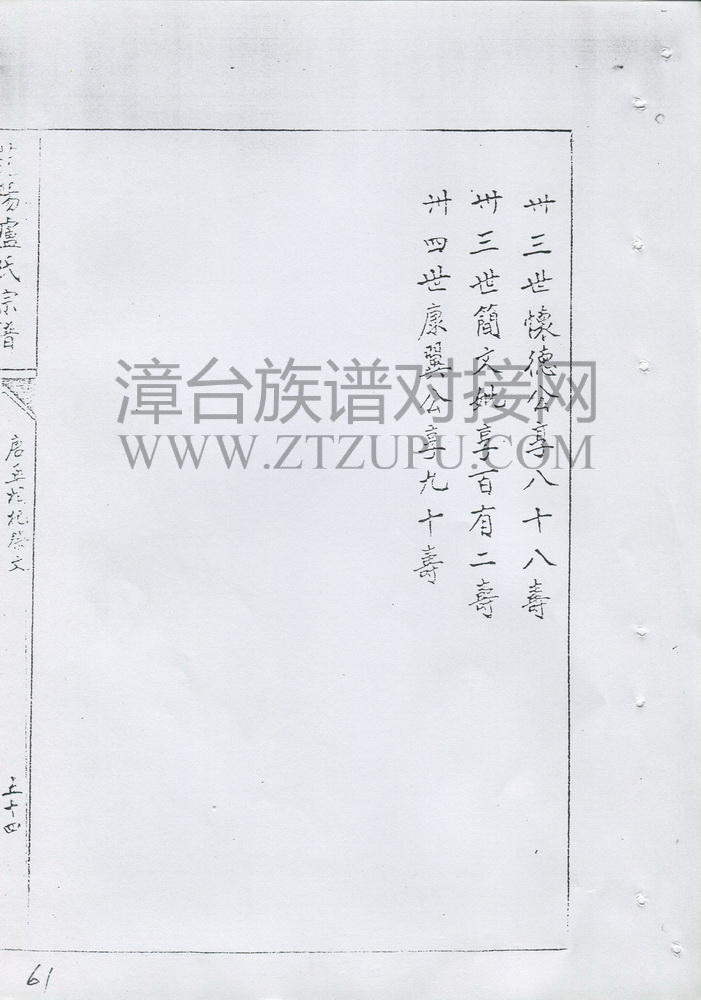 卅三世懷德公享八十八壽
卅三世簡文妣享百有二壽
卅四世康翼公享九十壽
陽盧氏宗譜
祭文
五十四
61
漳台族谱对接网
WWW.ZTZUPU.COM